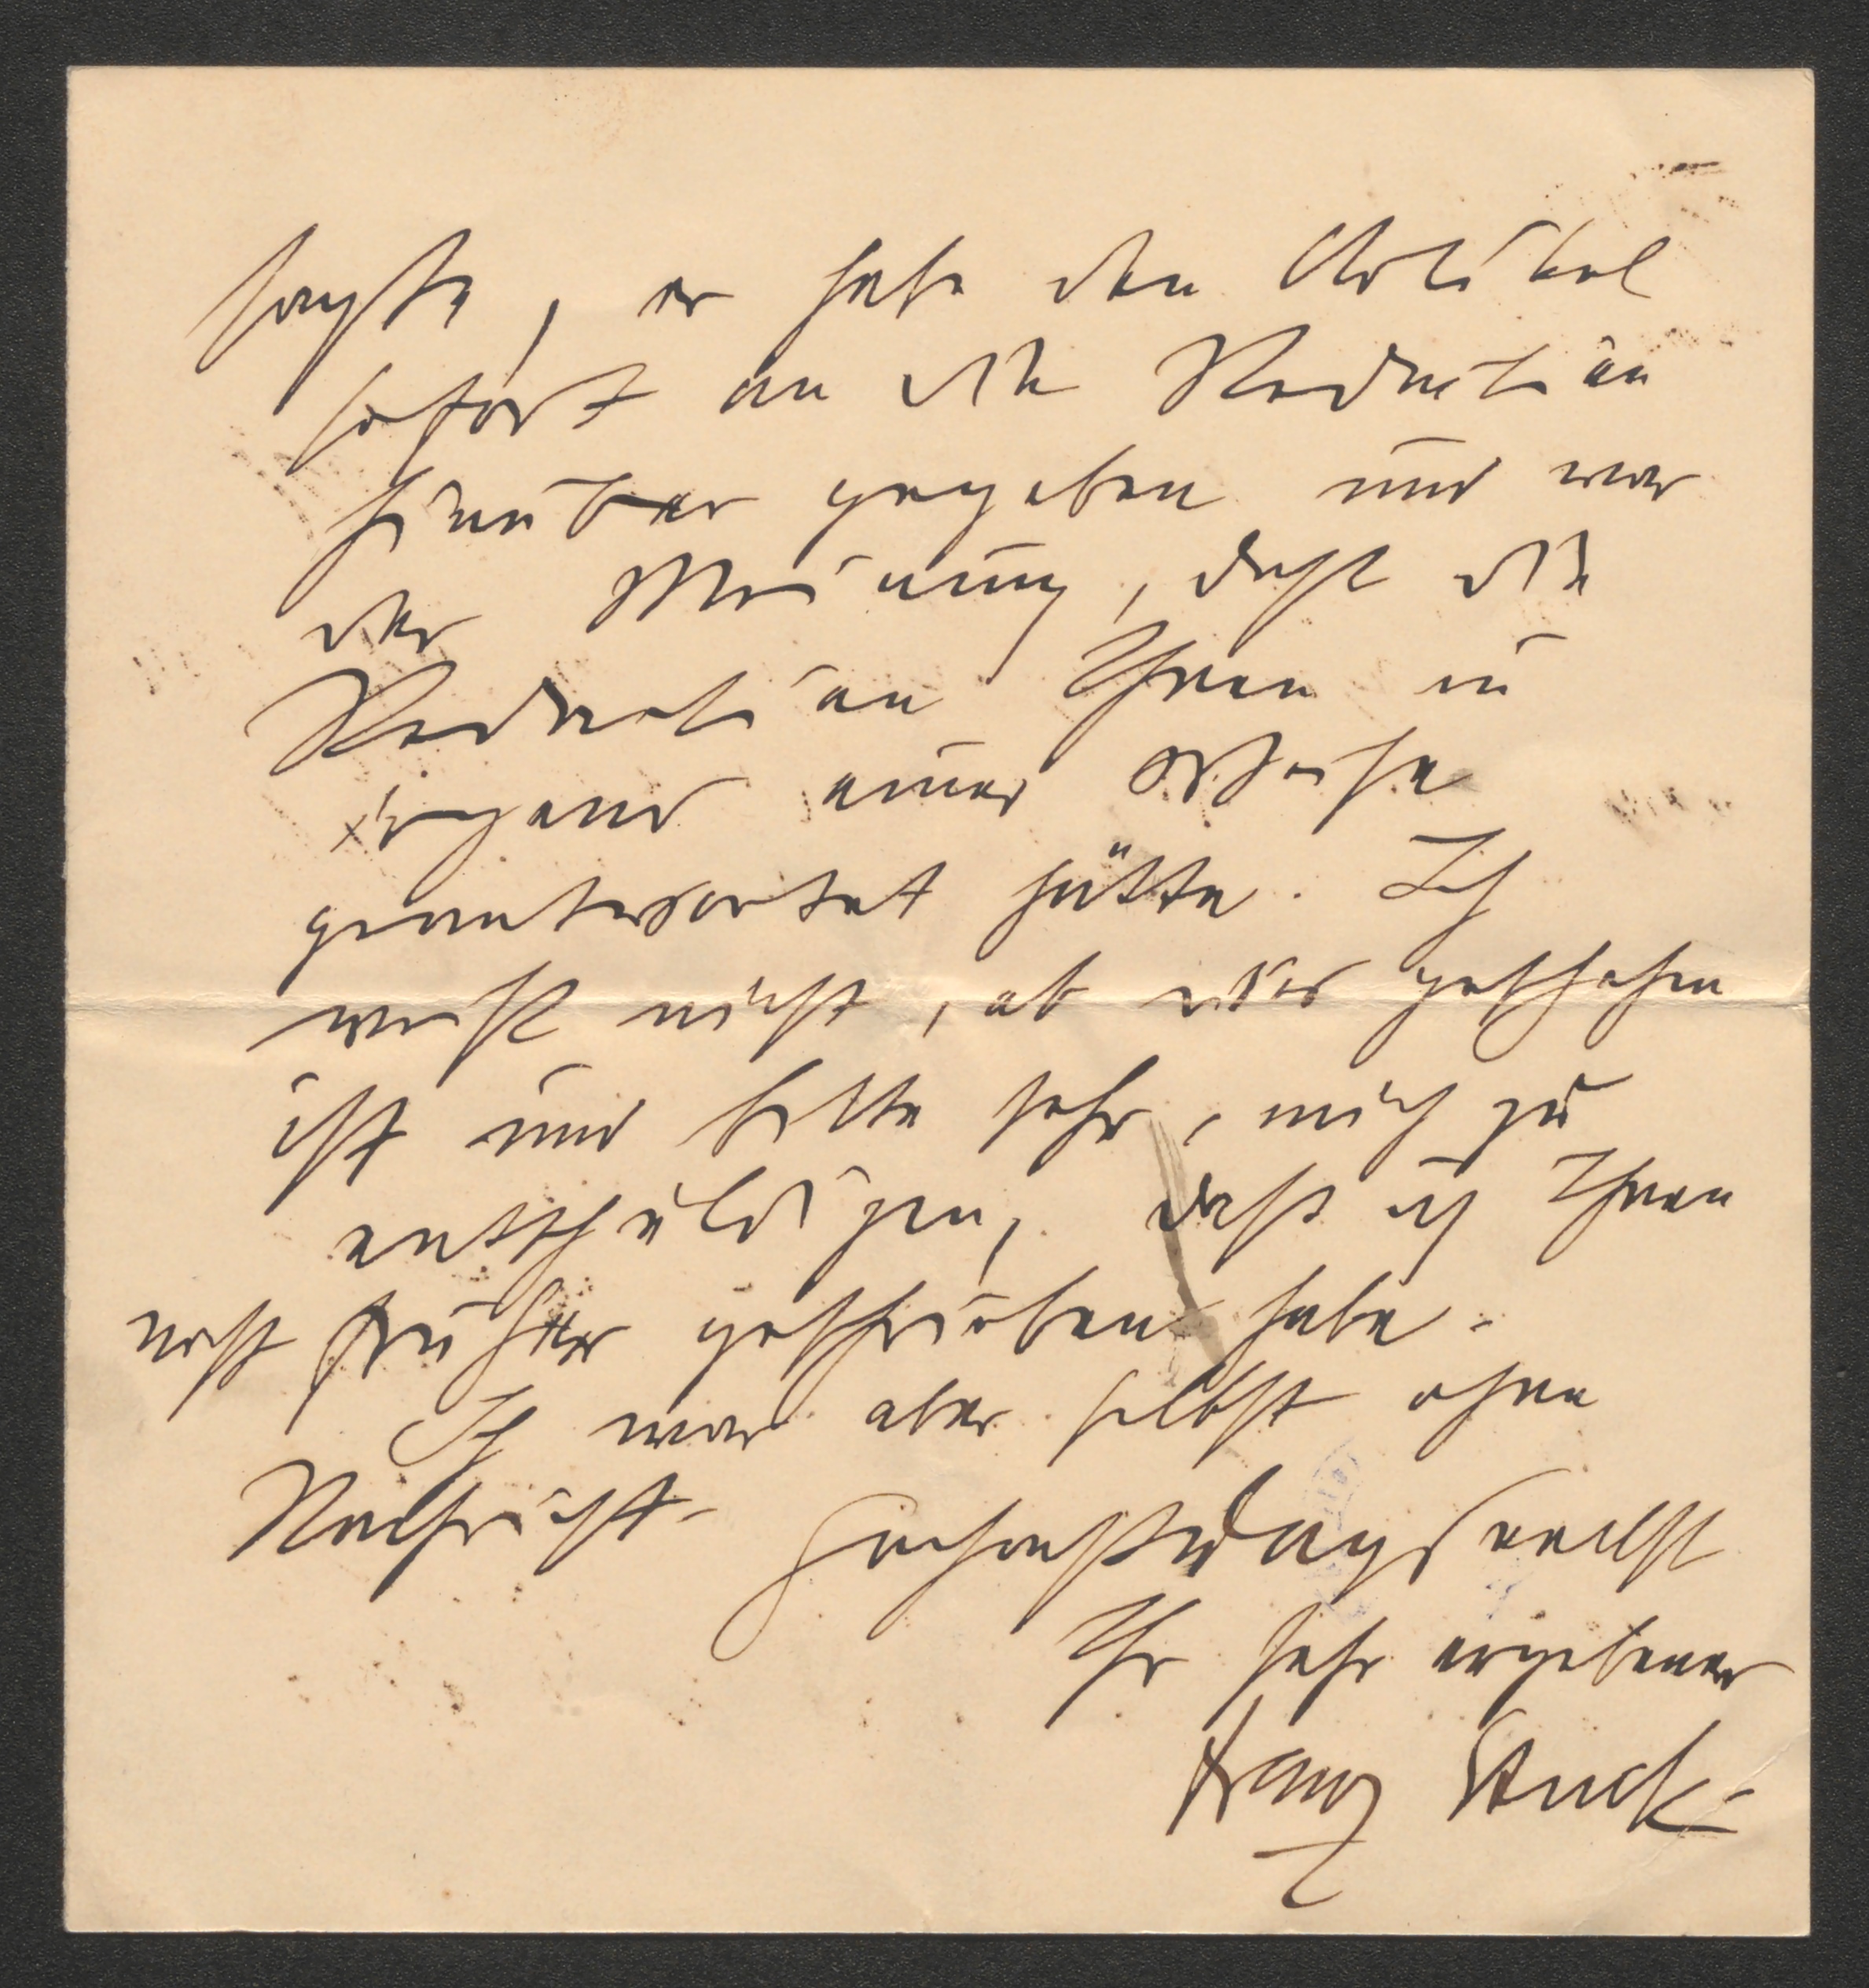 sagte, er habe den Artikel
sofort an die Redaction
hinüber gegeben und war
der Meinung, daß die
Redaction Ihnen in
irgend einer Weise
geantwortet hätte. Ich
weiß nicht, ob dies geschehen
ist und bitte sehr, mich zu
entschuldigen, daß ich Ihnen
nicht früher geschrieben habe.
Ich war aber selbst ohne
Nachricht. Hochachtungsvollst
Ihr sehr ergebener
Franz Stuck